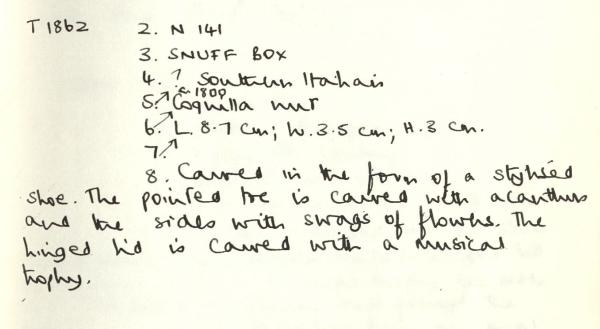 T 1862 2. N 141
3. SNUFF BOX
4. ? Southern Italian
c. 1800
5. Coquilla nut
6. L. 8.7 cm; W. 3.5 cm; H. 3 cm.
7.
8. Carved in the form of a stylised
shoe. The pointed toe is carved with acanthus
and the sides with swags of flowers. The
hinged lid is carved with a musical
trophy.